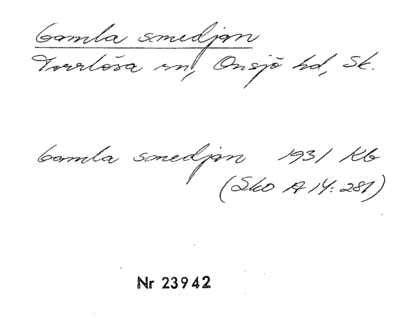 Gamla smedjan
Torrlösa sn, Onsjö hd, Sk.
Gamla smedjan 1931 Kb
(Sko A 14: 281)
Nr 23942